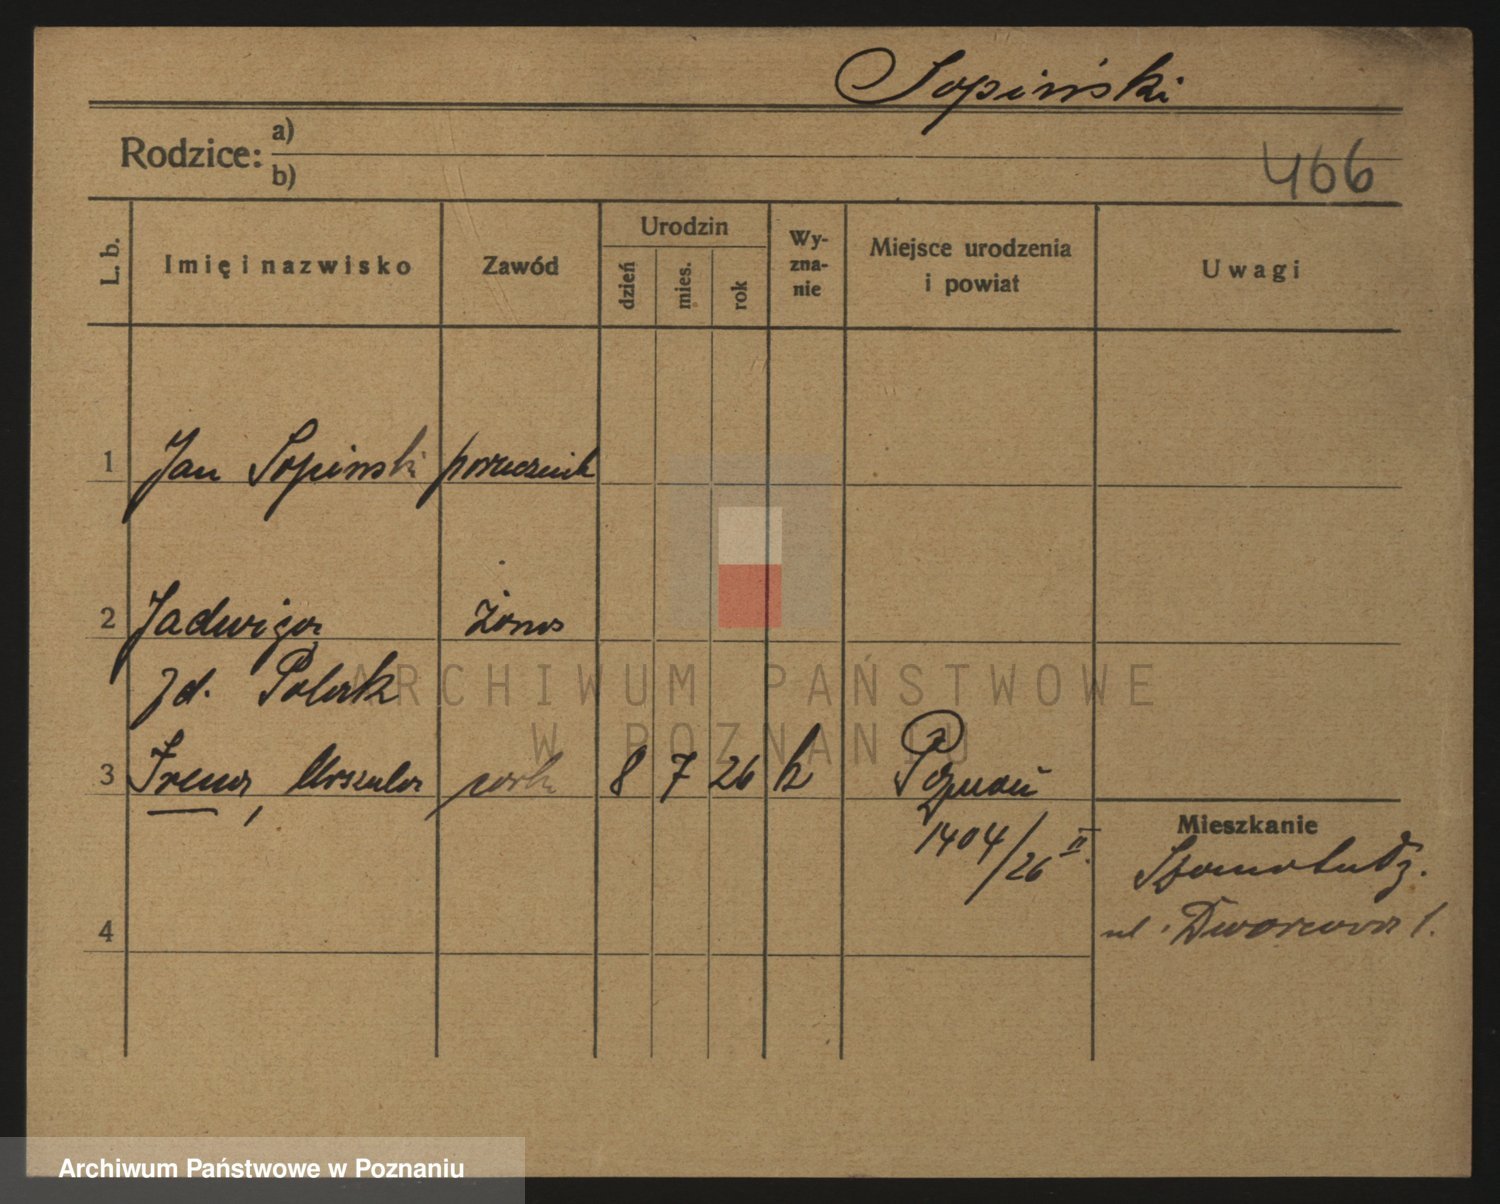 Sopiński
Rodzice: a)
b)
466
L. b.
Imię i nazwisko
Zawód
Urodzin
dzień
mies.
rok
Wy-
zna-
nie
Miejsce urodzenia
i powiat
Uwagi
1 Jan Sopinski porucznik
2 Jadwiga żona
zd. Polak
3 Irena, Urszula cork 8 7 26 k Poznań
1404/26 II.
Mieszkanie
ul. Dworcowa 1.
4
ARCHIWUM PAŃSTWOWE
W POZNANIU
Archiwum Państwowe w Poznaniu